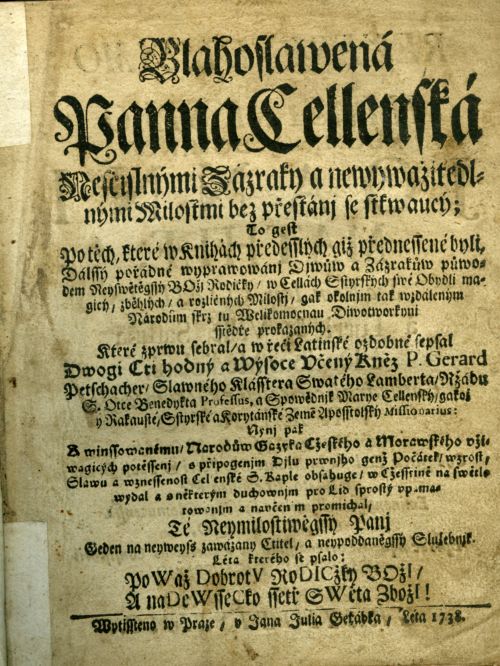 Blahoslawená
Panna Cellenská
Nesčislnými Zázraky a newywažitedl-
nými Milostmi bez přestánj se stkwaucý;
To gest
Po těch, které w Knihách předesslých giž přednessené byli,
Dálssý pořádné wyprawowánj Diwůw a Zázrakůw půwo-
dem Neyswětěgssý BOžj Rodičky/ w Cellách Sstyrských swé Obydlj ma-
gicý, zběhlých/ a rozličných Milostj/ gak okolnjm tak wzdáleným
Národům skrz tu Welikomocnau Diwotworkyni
sstědře prokázaných.
Které zprwu sebral/a w řeči Latinské ozdobně sepsal
Dwogj Cti hodný a Wýsoce Včený Kněz P. Gerard
Petschacher/ Slawného Klásstera Swatého Lamberta/ Ržádu
S. Otce Benedykta Professus, a Spowědnjk Marye Cellenský/ gakož
y Rakauské/ Sstyrské a Korytánské Země Aposstolský Missionarius:
Nynj pak
K winssowanému/ Národůw Gazyka Cžeského a Morawského vžj-
wagicých potěssenj/ s připogenjm Djlu prwnjho genž Počátek/ wzrost/
Sláwu a wznessenost Cellenské S. Kaple obsahuge/ w Cžesstině na swětlo
wydal a s některým duchownjm pro Lid sprostý vpama-
towánjm a naučenjm promichal/
Té Neymilostiwěgssý Panj
Geden na neyweyss zawázaný Ctitel/ a neypoddaněgssý Služebnjk.
Léta kterého se psalo:
PoWaž DobrotV RoDICžky BOžI/
A naDeWsseCko ssetř SWěta ZbožI!
Wytisstěno w Praze/ v Jana Julia Geřábka/ Léta 1738.